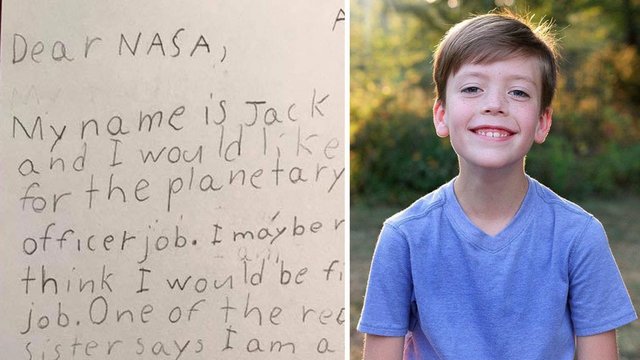 A
Dear NASA,
My name is Jack
and I would like
for the planetary
officer job. I maybe
think I would be fi
job. One of the rea
sister says I am a